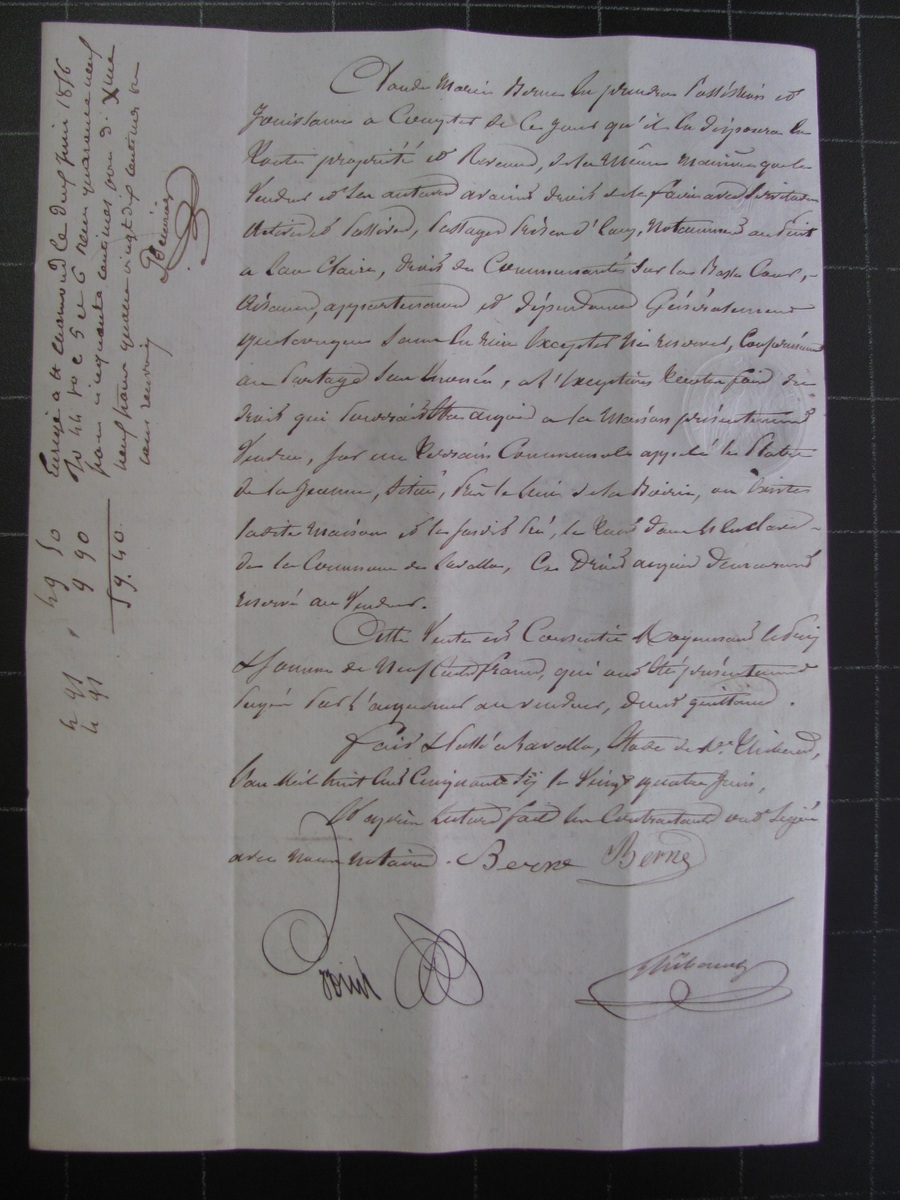 Claude Marie Berne en prendra possession et
Jouissance a Compter de ce jour qu'il en disposera en
toute propriété et Revenu, de la Même Manière que le
Vendeur et ses auteurs avaient droit de le faire avec Servitudes
Actives et passives, passages prises d'eaux, Notamment au puit
a Eau Claire, droit de Communautés sur la Basse Cour,
Aisances, appartenances et dépendances Généralement
quelconques sans en rien Excepter Ni reserver, Conformément
au partage sus énoncé, a l'Exception toutefois du
droit qui pourrait être acquis a la maison présentement
Vendue, sur un Terrain Communal appelé le
de la Jeanne, Situé, près le lieu de la
ladite maison et le jardin sis, le tout dans
de la Commune de Lavalla, Ces Droits acquis demeurent
reservé au Vendeur.
Cette Vente est Consentie Moyennant le Prix
& Somme de Neuf Cents francs, qui ont été présentement
payés par l'acquereur au vendeur, dont quittance.
Fait & Passé a Lavalla, Etude de Me Thibaud,
L'an Mil huit Cent Cinquante Six le Vingt quatre Juin,
Et après lecture faite les Contractants ont Signé
avec nous notaires. Berne Berne
Thibaud
Enregistré a St Chamond le deux juin 1856
fo 44 Vo c 5 et 6 reçu quarante neuf
francs cinquante centimes
neuf francs quatre vingt dix centimes
sans renvoi
49 50
9 90
59. 40.